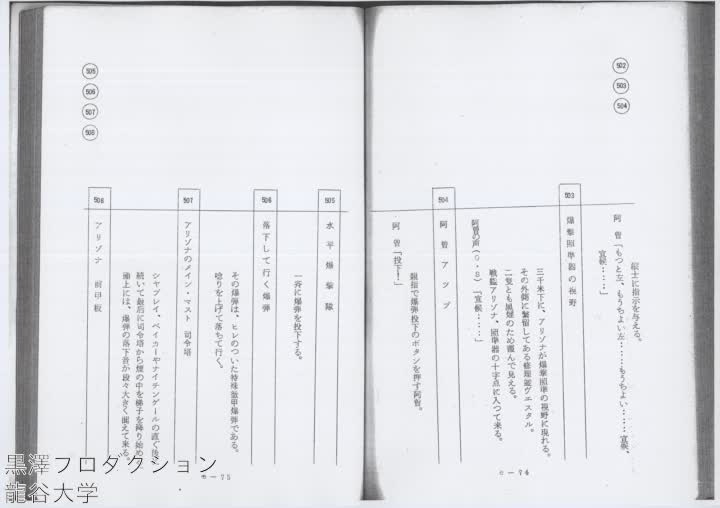 502
503
504
紜士に指示を与える。
阿曽「もつと左、もうちよい左……もうちよい……宜候、
宜候……」
503
爆撃照準器の視野
三千米下に、アリゾナが爆撃照準の視野に現れる。
その外側に繋留してある修理艦ヴエスタル。
二隻とも黒煙のため霞んで見える。
戦艦アリゾナ、照準器の十字点に入つて来る。
阿曽の声(O・S)「宜候……」
504
阿曽アツプ
親指で爆弾投下のボタンを押す阿曽。
阿曽「投下!」
c—74
505
506
507
508
505
水平爆撃隊
一斉に爆弾を投下する。
506
落下して行く爆弾
その爆弾は、ヒレのついた特殊徹甲爆弾である。
唸りを上げて落ちて行く。
507
アリゾナのメイン・マスト 司令塔
シヤプレイ、ベイカーやナイチンゲールの直ぐ後
続いて最后に司令塔から煙の中を梯子を降り始め
頭上には、爆弾の落下音が段々大きく聞えて来る。
508
アリゾナ 前甲板
c—75
黒澤プロダクション
龍谷大学